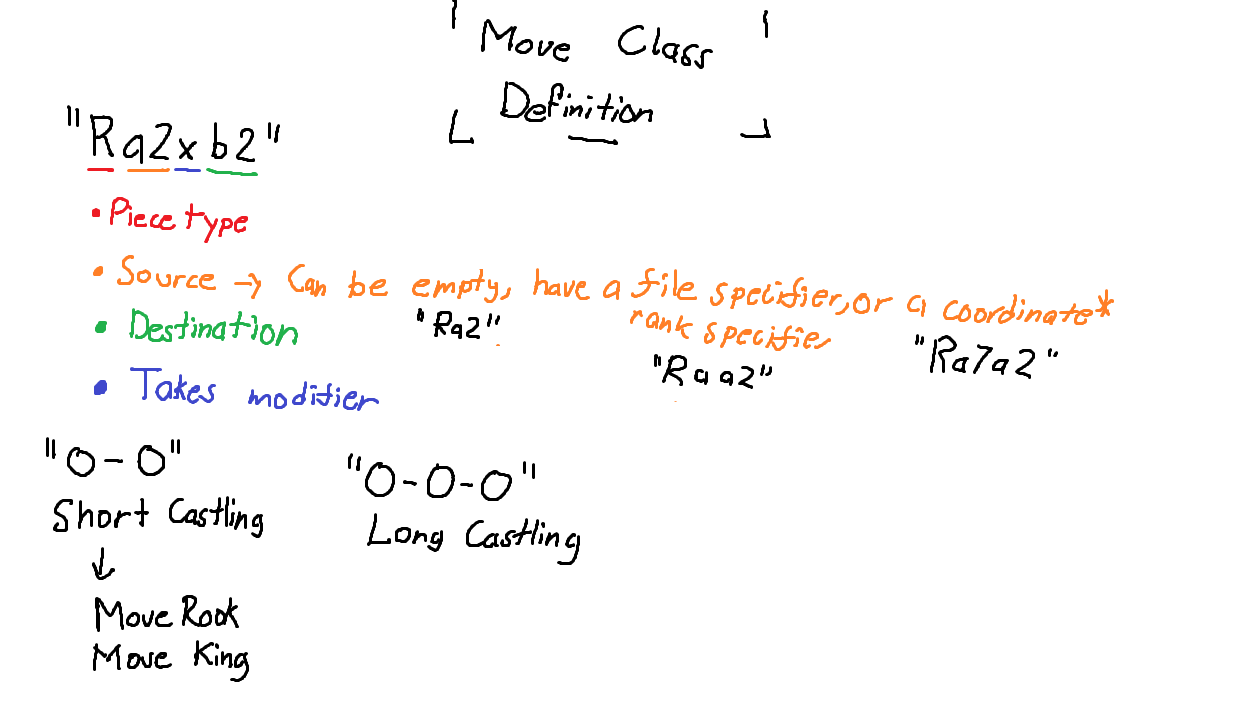 Move Class
Definition
"Ra2xb2"
• Piece type
• Source → Can be empty, have a file specifier, or a coordinate*
rank specifier
• Destination
"Ra2"
"Raa2"
"Ra7a2"
• Takes modifier
"O-O"
"O-O-O"
Short Castling
Long Castling
↓
Move Rook
Move King